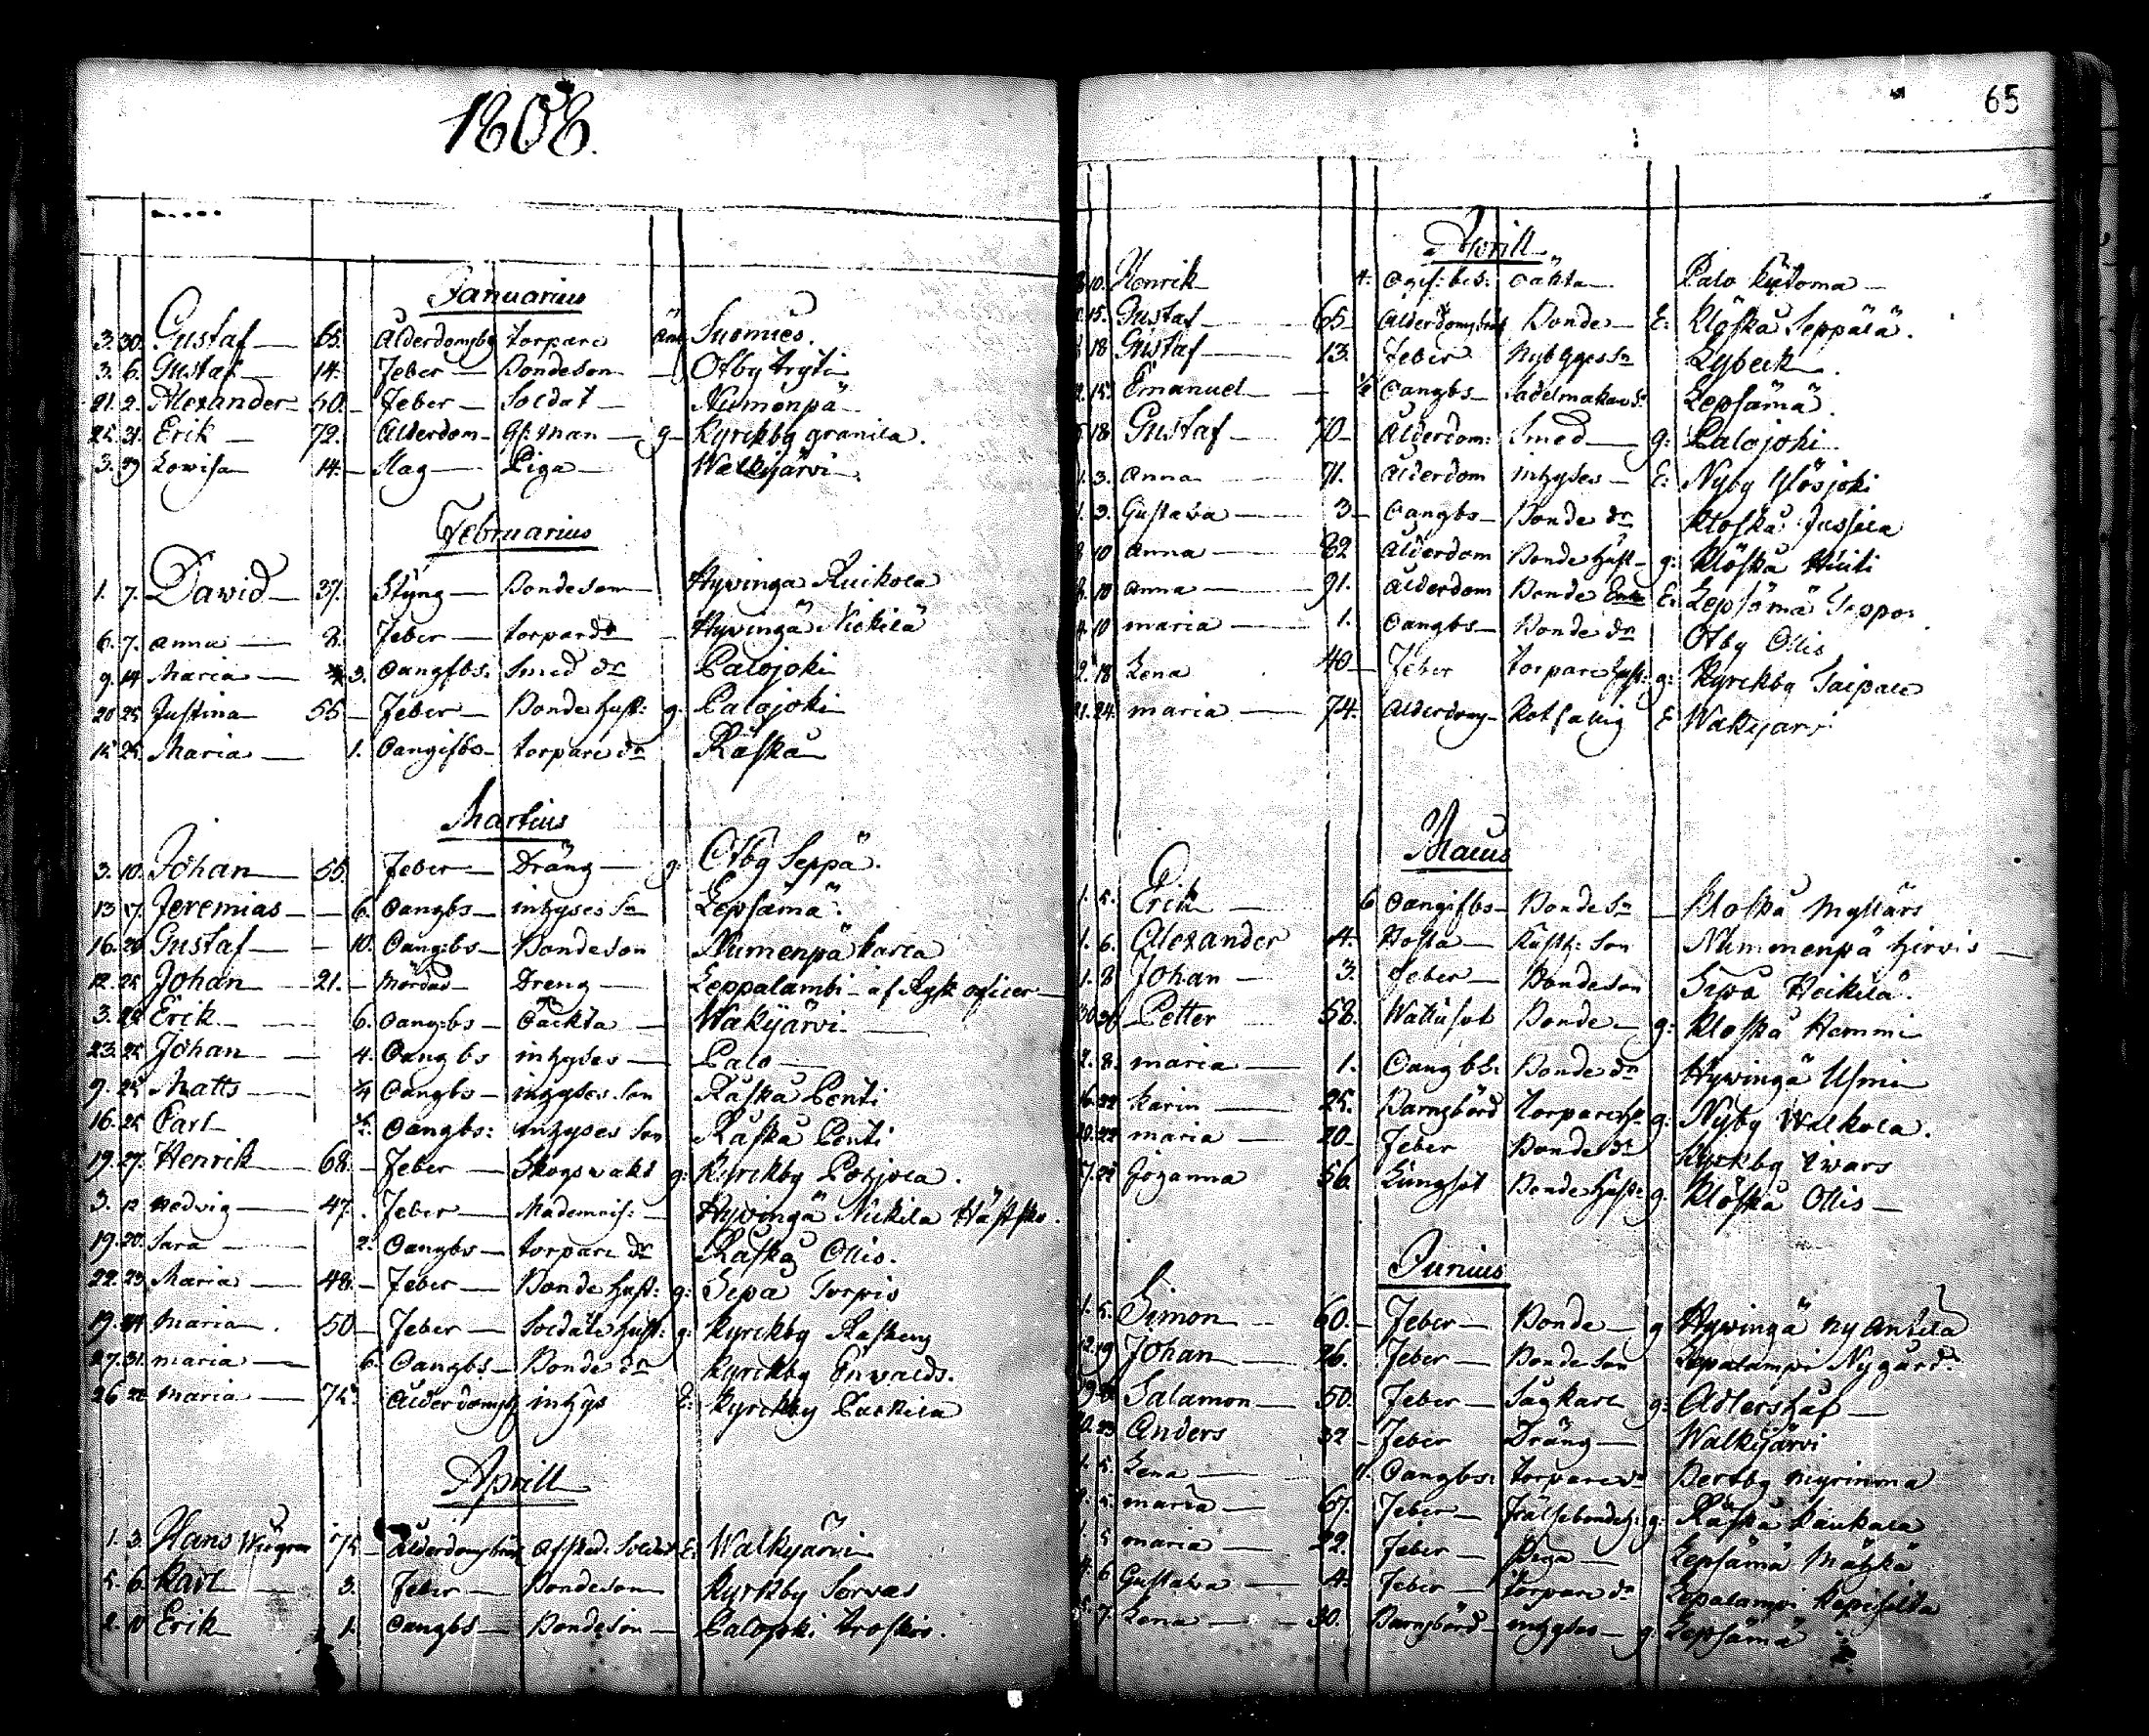 1808.
65
Januarius
3. 30. Gustaf 65. Ålderdomsbr torpare Änk Suomies.
3. 6. Gustaf 14. Feber Bondeson Ofby tryti
21. 2. Alexander 50. Feber Soldat Numenpä
25. 31. Erik 72. Ålderdom g Kyrckby granila.
3. Lowisa 14. Slag Piga Walkijärvi
Februarius
1. 7. David 37. Styng Bondeson Hyvinga Ruikola
6. 7. Anna 8. Feber torpare dr Hyvingä Nickilä
9. 14 Maria 3. Oangfbs: Smed dr Palojoki
20 25 Justina 55 Feber Bonde hust: g. Palojoki
25. Maria 1. Oangifbs torpare dr Råskå
Martius
3. 10. Johan 55. Feber Dräng g. Ofby Seppä.
13 17. Jeremias 6. Oangbs inhyses Sn Lepsämä.
16. 20 Gustaf 10. Oangbs Bondeson Numenpä karla
12. 25 Johan 21. Mördad Dreng Leppalambi af Rysk oficier
3. 25 Erik 6. Oangbs Oäckta Wakijärvi
23. 25 Johan 4. Oangbs inhyses Palo
9. 25 Matts 1/4 Oangbs inhyses Son Råskå Penti
16. 25 Carl Oangbs: inhyses Son Råskå Penti
19. 27. Henrik 68. Feber Skogswakt g: Kyrckby Pohjola.
3. 12 Hedvig 47. Feber Mademois: Hyvingä Nickila
19. 20. Sara 2. Oangbs torpare dr Råskå Ollis.
22. 23 Maria 48. Feber Bonde hust: g: Sepä
19. 24 Maria 50 Feber Soldats hust: g: Kyrckby
27. 31. maria 6. Oangbs Bonde dr Kyrckby Enwalds.
26 maria 75. inhys E: Kyrckby Packila
Aprill
1. 3. Hans 75 Afsked. Soldat E: Walkjärvi
5. 6. Karl 3. Feber Bondeson Kyrkby Sorvas
2. 10 Erik 1. Oangbs Bondeson Palojoki
Aprill
10. Henrik 4. Ogif: bes: oäkta Palo
15. Gustaf 65 Bonde E: Klöfskå Seppälä.
18 Gustaf 13. Feber Nybyggess Lybeck.
15. Emanuel 1/2 Oangbs Sadelmakar Sn Lepsämä.
18 Gustaf 70 Ålderdom: Smed g: Palojoki
1. 3. Anna 71. Ålderdom inhyses E: Nyby Ylösjoki
1. 3. Gustava 3 Oangbs Bonde dr Klöfskå Jussila
8. 10 Anna 82 Ålderdom Bonde hust g: Klöfskå
8. 10 Anna 91. Ålderdom Bonde Enka E: Lepsämä Seppo.
4. 10 maria 1. Oangbs Bonde dr Ofby Ollis
2. 18 Lena 40 Feber torpare hust: g: Kyrckby Taipale
21. 24. maria 74. E Walkjarvi
Maius
1. 5. Erik 6 Oangifbs Bonde Sn Klofskå Myllärs
1. 6. Alexander 4. Hosta Son Nummenpä Hirvis
1. 8 Johan 3. Feber Bondeson Heikilä.
30. Petter 58. Wattusot Bonde g: Klofskå Hemmi
2. 8. maria 1. Oangbs: Bonde dr Hyvingä Usmi
16. 22 Karin 25. Barnsbörd torpare g: Nyby Walkola.
22 maria 20 Feber Bonde dr Kyrkby Iwars
22 Johanna 56. Lungsot Bonde hust: g. Klöfskå Ollis
Junius
1. 5. Simon 60. Feber Bonde g Hyvingä ny Antila
12. 19 Johan 26. Feber Bonde Son Lepalampi Nygård
19. Salamon 50. Feber Sågkarl g: Adlershuf
23 Anders 32 Feber Dräng Walkjärvi
1. 5. Lena Oangbs: torpare dr Bertby
5. maria 67. Feber Frälsebonde g: Råskå Kaukala
1. 5 maria 22. Feber Piga Lepsämä
4. 6 Gustava 4. Feber torpare dr Lepalampi
7. Lena 30. Barnsbörd inhyses g: Lepsämä